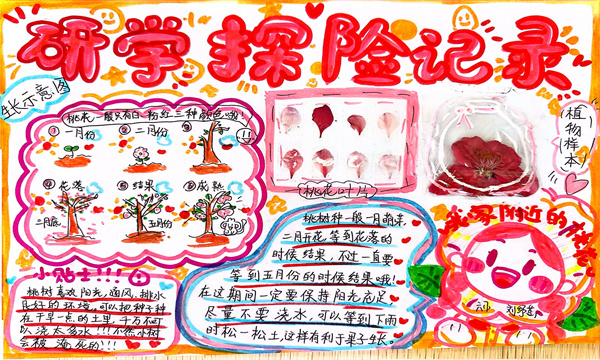 研学探险记录
生长示意图
桃花一般只有白、粉、红三种颜色哦!
① 一月份
② 二月份
③
④ 花落
⑤ 结果
⑥ 成熟
二月底
五月份
桃花叶片
植物样本
我家附近的
小贴士!!!
桃树喜欢阳光,通风、排水
良好的环境,可以把种子种
在干旱一点的土里,千万不可
以浇太多水!!!不然小树
会被淹死的!!!
桃树种一般一月萌芽,
二月开花,等到花落的
时候结果,不过一直要
等到五月份的时候结果哦!
在这期间一定要保持阳光充足
尽量不要浇水,可以等到下雨
时松一松土这样有利于果子生长。